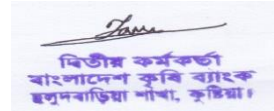 দ্বিতীয় কর্মকর্তা
বাংলাদেশ কৃষি ব্যাংক
হলুদবাড়িয়া শাখা, কুষ্টিয়া।